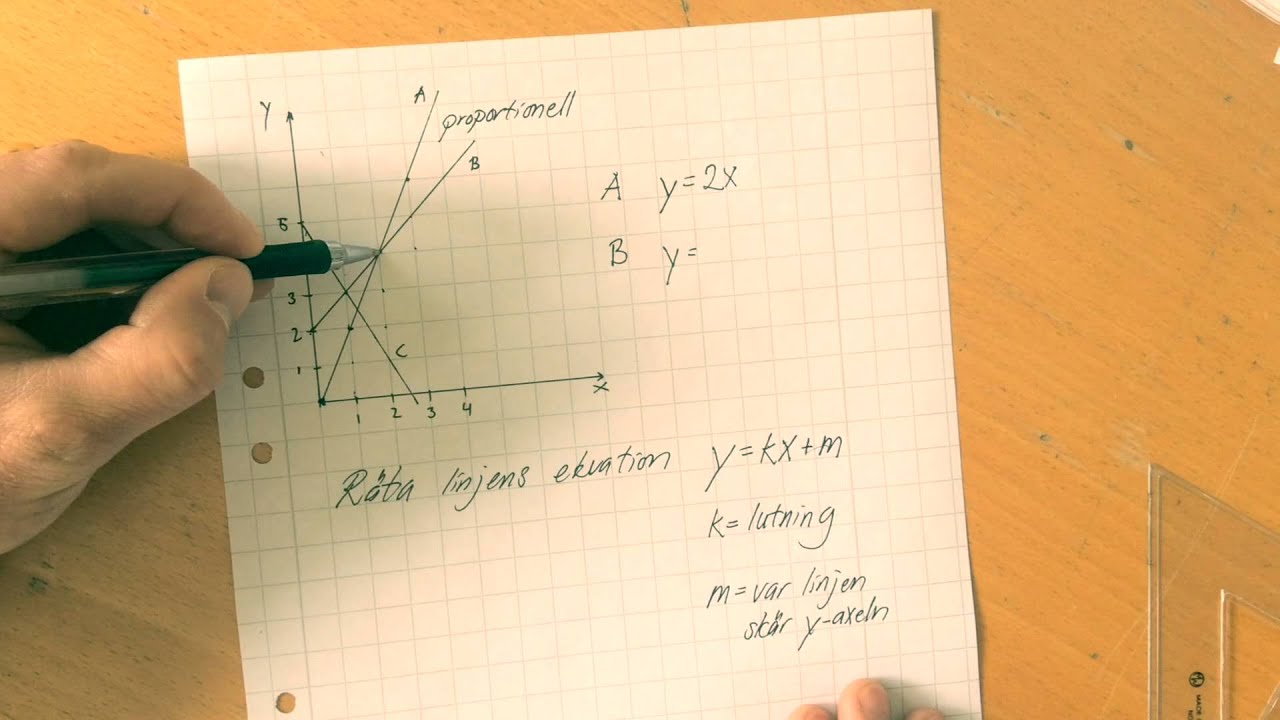 Y
A
proportionell
B
A y=2x
5
B y=
3
2
C
1
x
1 2 3 4
Räta linjens ekvation y=kx+m
k=lutning
m=var linjen
skär y-axeln